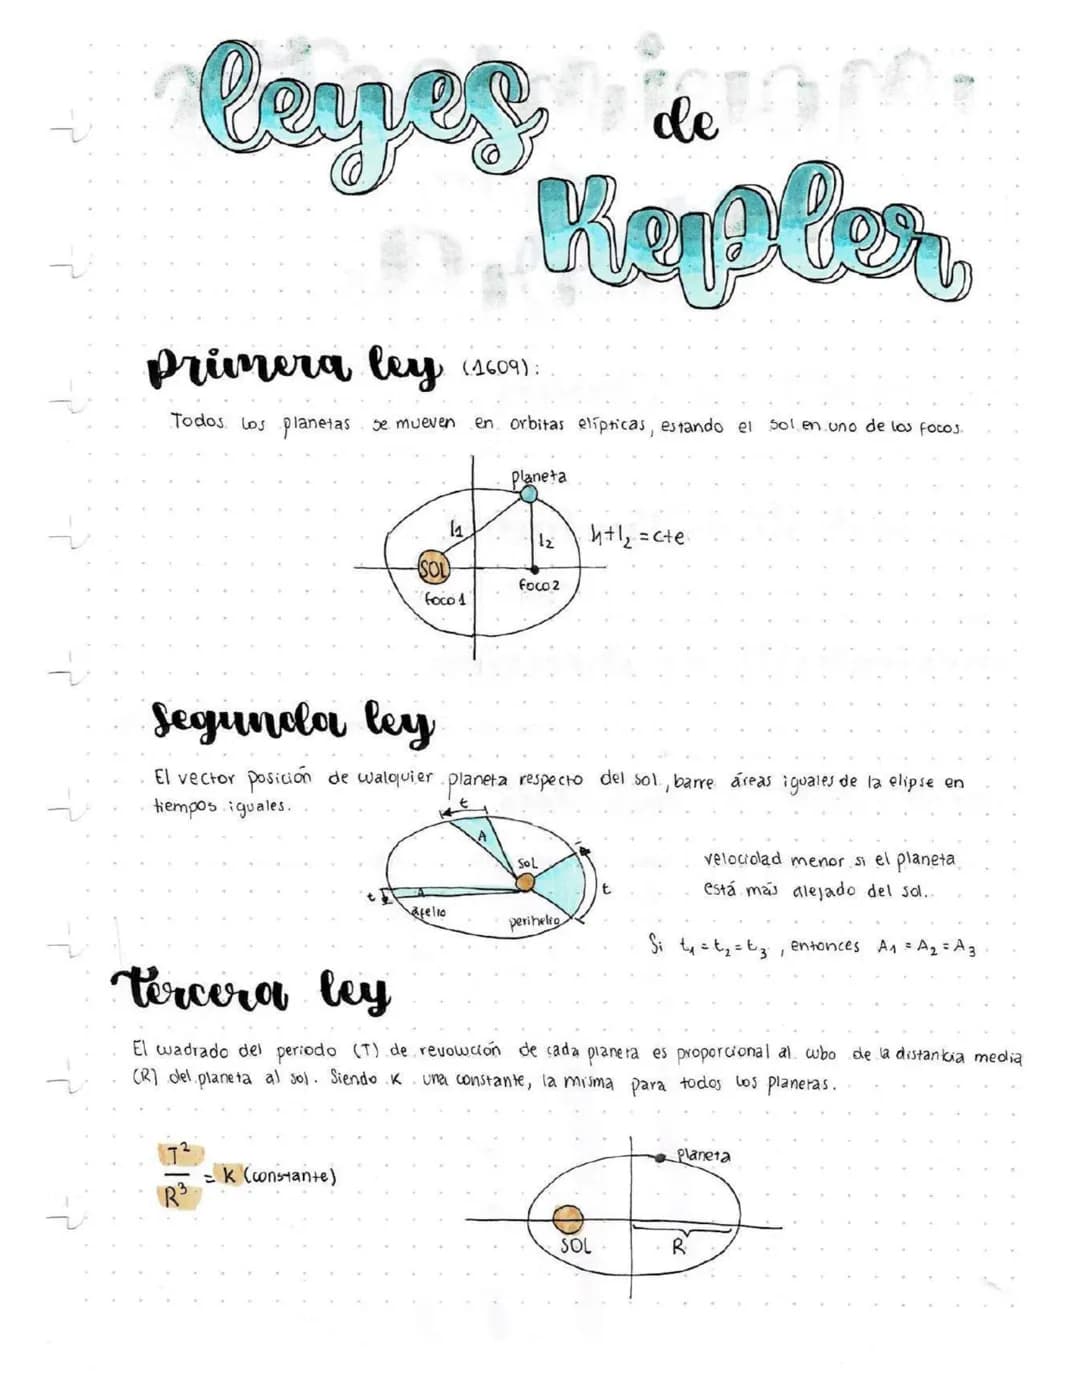 leyes de
Kepler
Primera ley (1609):
Todos los planetas se mueven en orbitas elípticas, estando el sol en uno de los focos.
planeta
l1
l2
l1+l2 = cte
SOL
foco 1
foco 2
Segunda ley
El vector posición de cualquier planeta respecto del sol, barre áreas iguales de la elipse en
tiempos iguales.
t
A
SOL
velocidad menor si el planeta
está más alejado del sol.
t
A
t
afelio
perihelio
Si t1 = t2 = t3, entonces A1 = A2 = A3
Tercera ley
El cuadrado del periodo (T) de revolución de cada planeta es proporcional al cubo de la distancia media
(R) del planeta al sol. Siendo K una constante, la misma para todos los planetas.
T²
R³
= K (constante)
Planeta
SOL
R